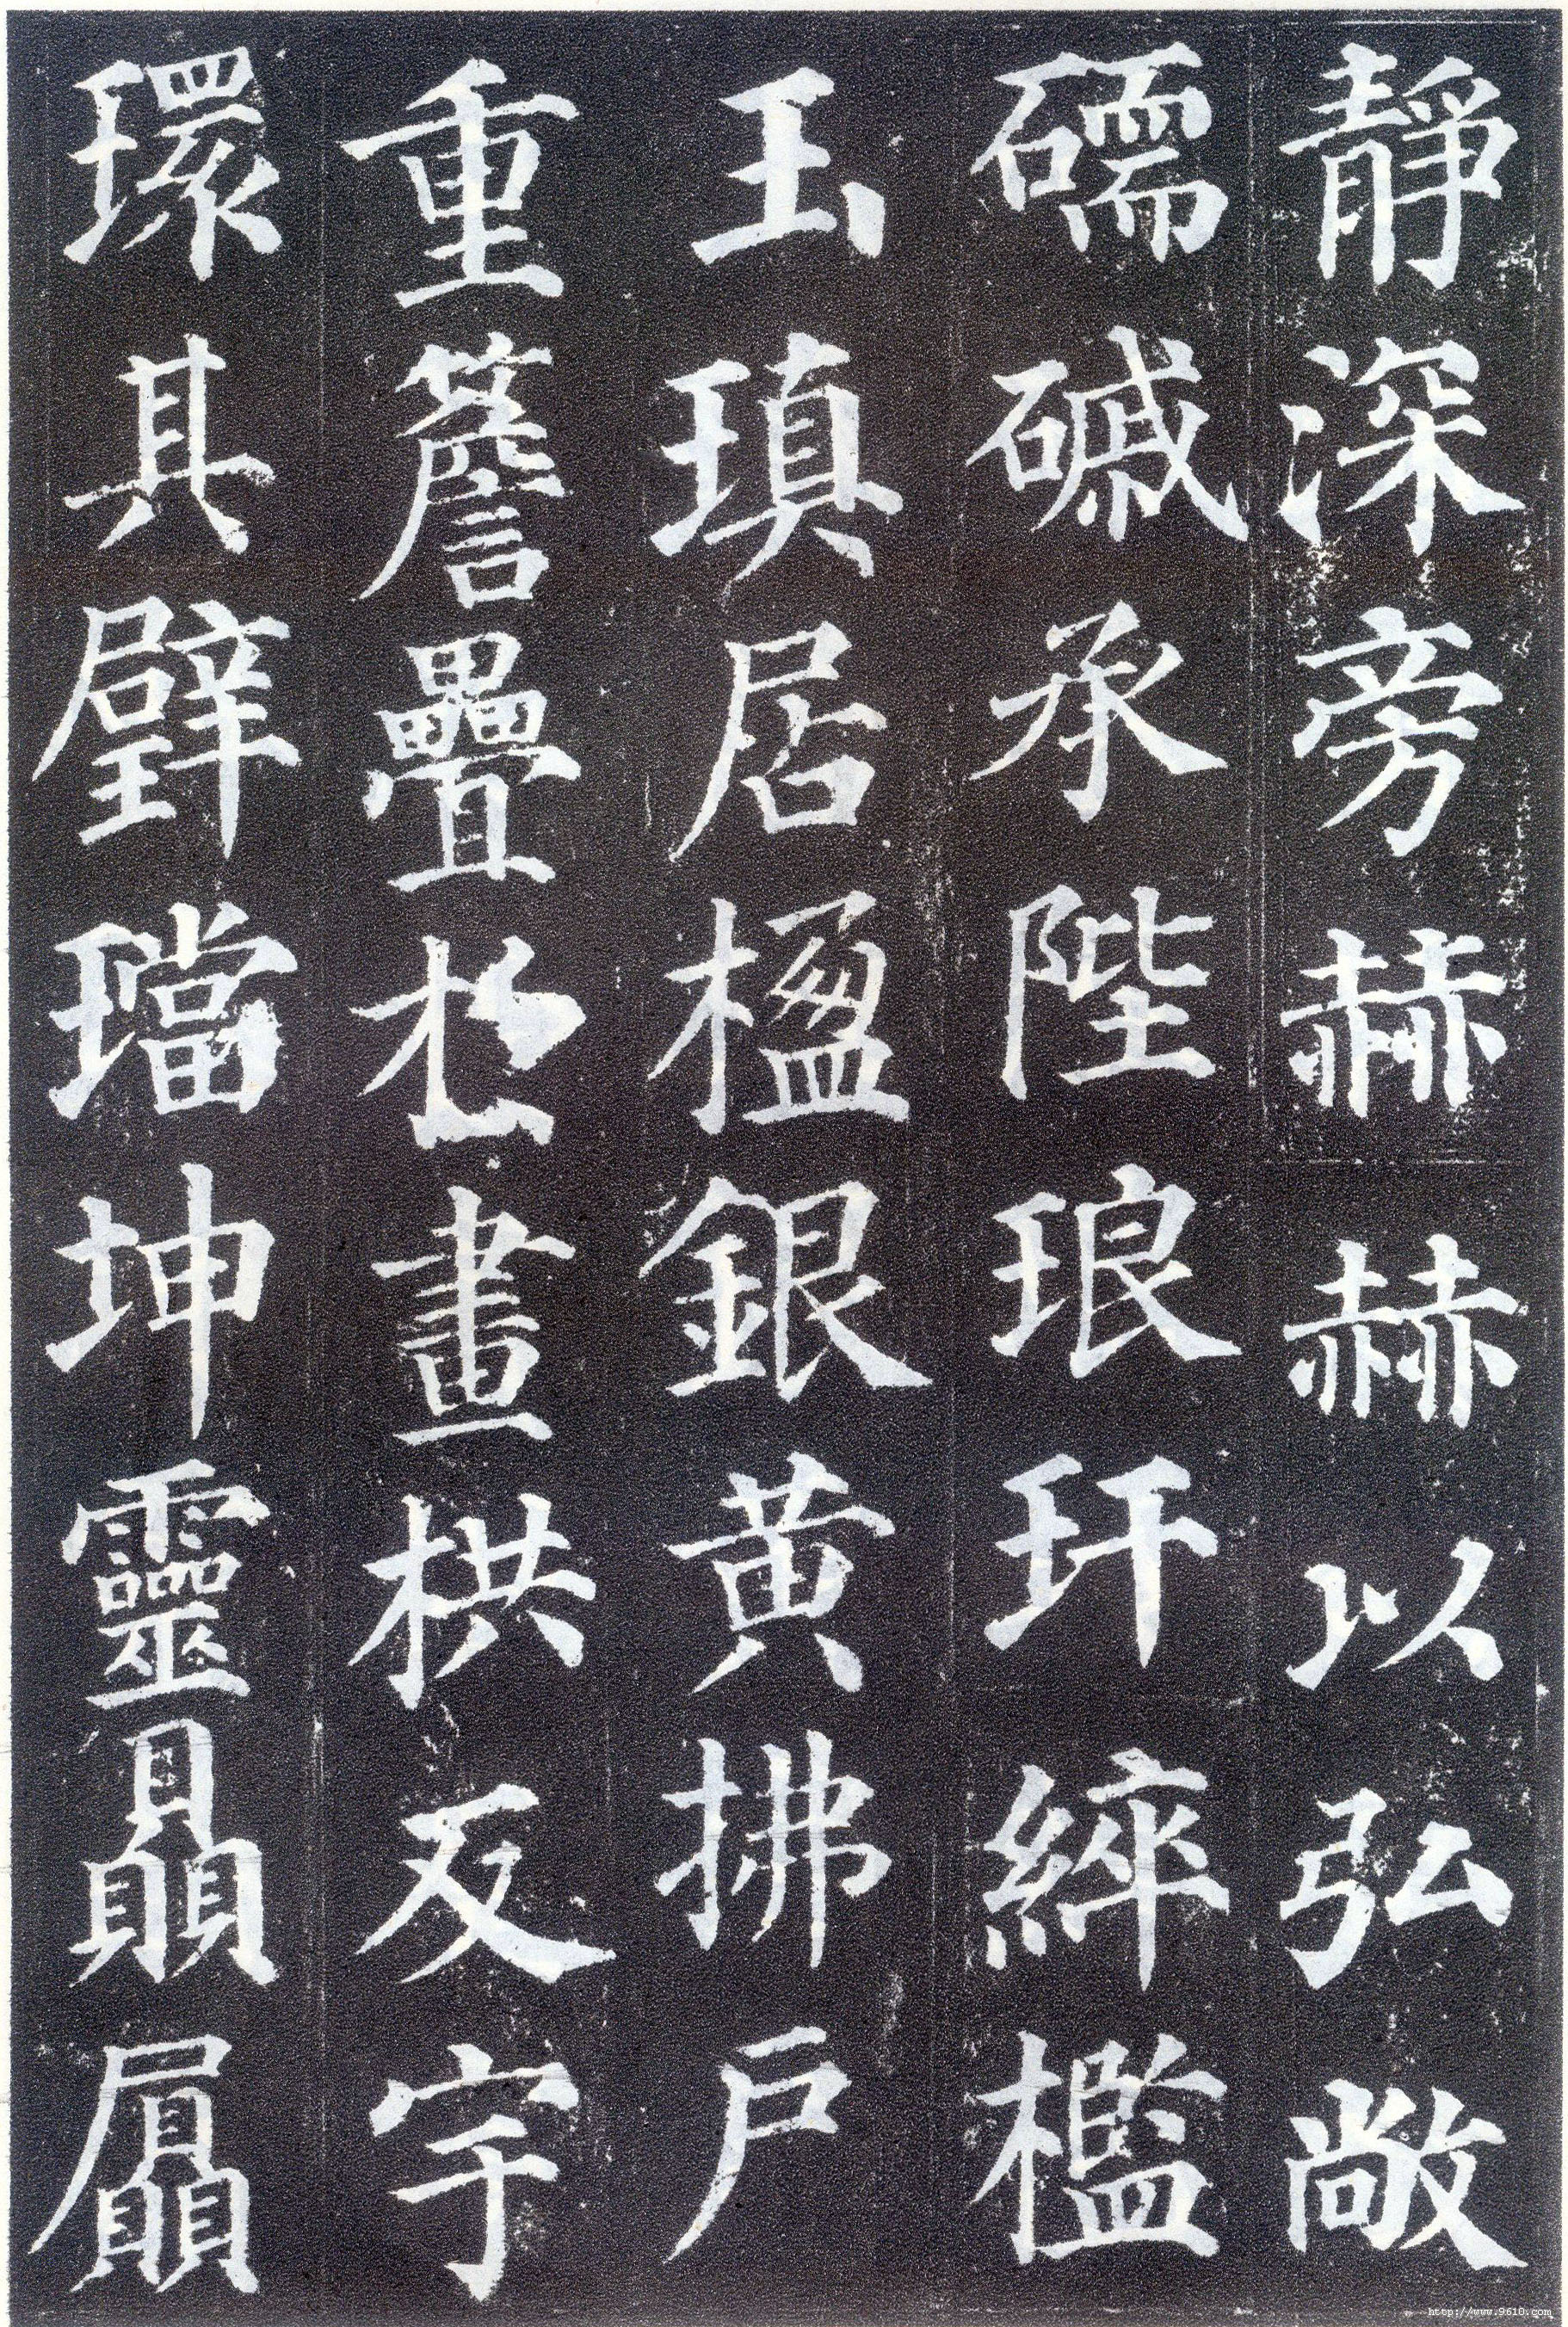 靜深旁赫赫以弘敞
礝磩承陛琅玕綷檻
玉瑱居楹銀黃拂戶
重簷疊於畫栱反宇
環其璧璫坤靈贔屭
http://www.9610.com